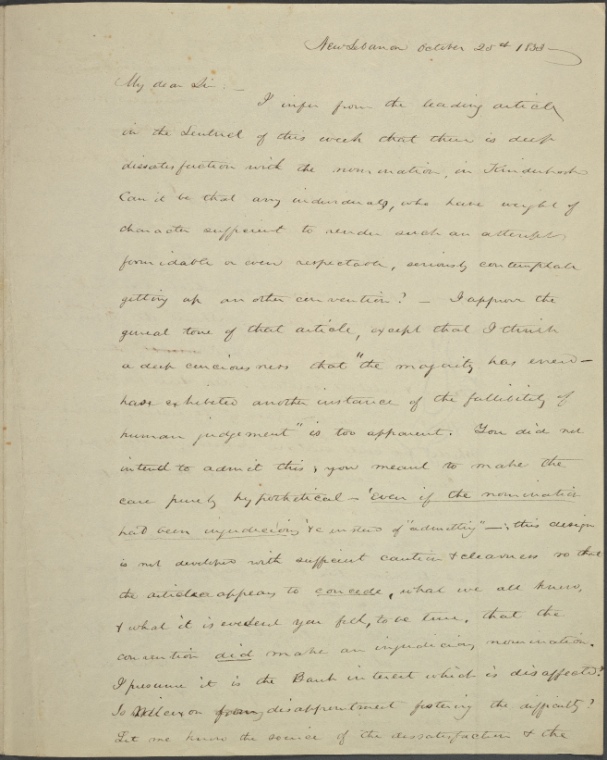 New Lebanon October 20th 183
My dear Sir. —
I infer from the leading article
in the Sentinel of this week that there is deep
dissatisfaction with the nomination, in Kinderhook
Can it be that any individuals, who have weight of
character sufficient to render such an attempt
formidable or even respectable, seriously contemplate
getting up an other convention? — I approve the
general tone of that article, except that I think
a deep conciousness that "the majority has erred—
have exhibited another instance of the fallibility of
human judgement" is too apparent. You did not
intend to admit this, you meant to make the
case purely hypothetical — "even if the nomination
had been injudicious" &c instead of "admitting" —; this design
is not developed with sufficient caution & clearness so that
the article appears to concede, what we all know,
& what it is evident you felt, to be true, that the
convention did make an injudicious nomination.
I presume it is the Bank interest which is disaffected?
Is Wilcoxon from disappointment fostering the difficulty?
Let me know the source of the dissatisfaction & the